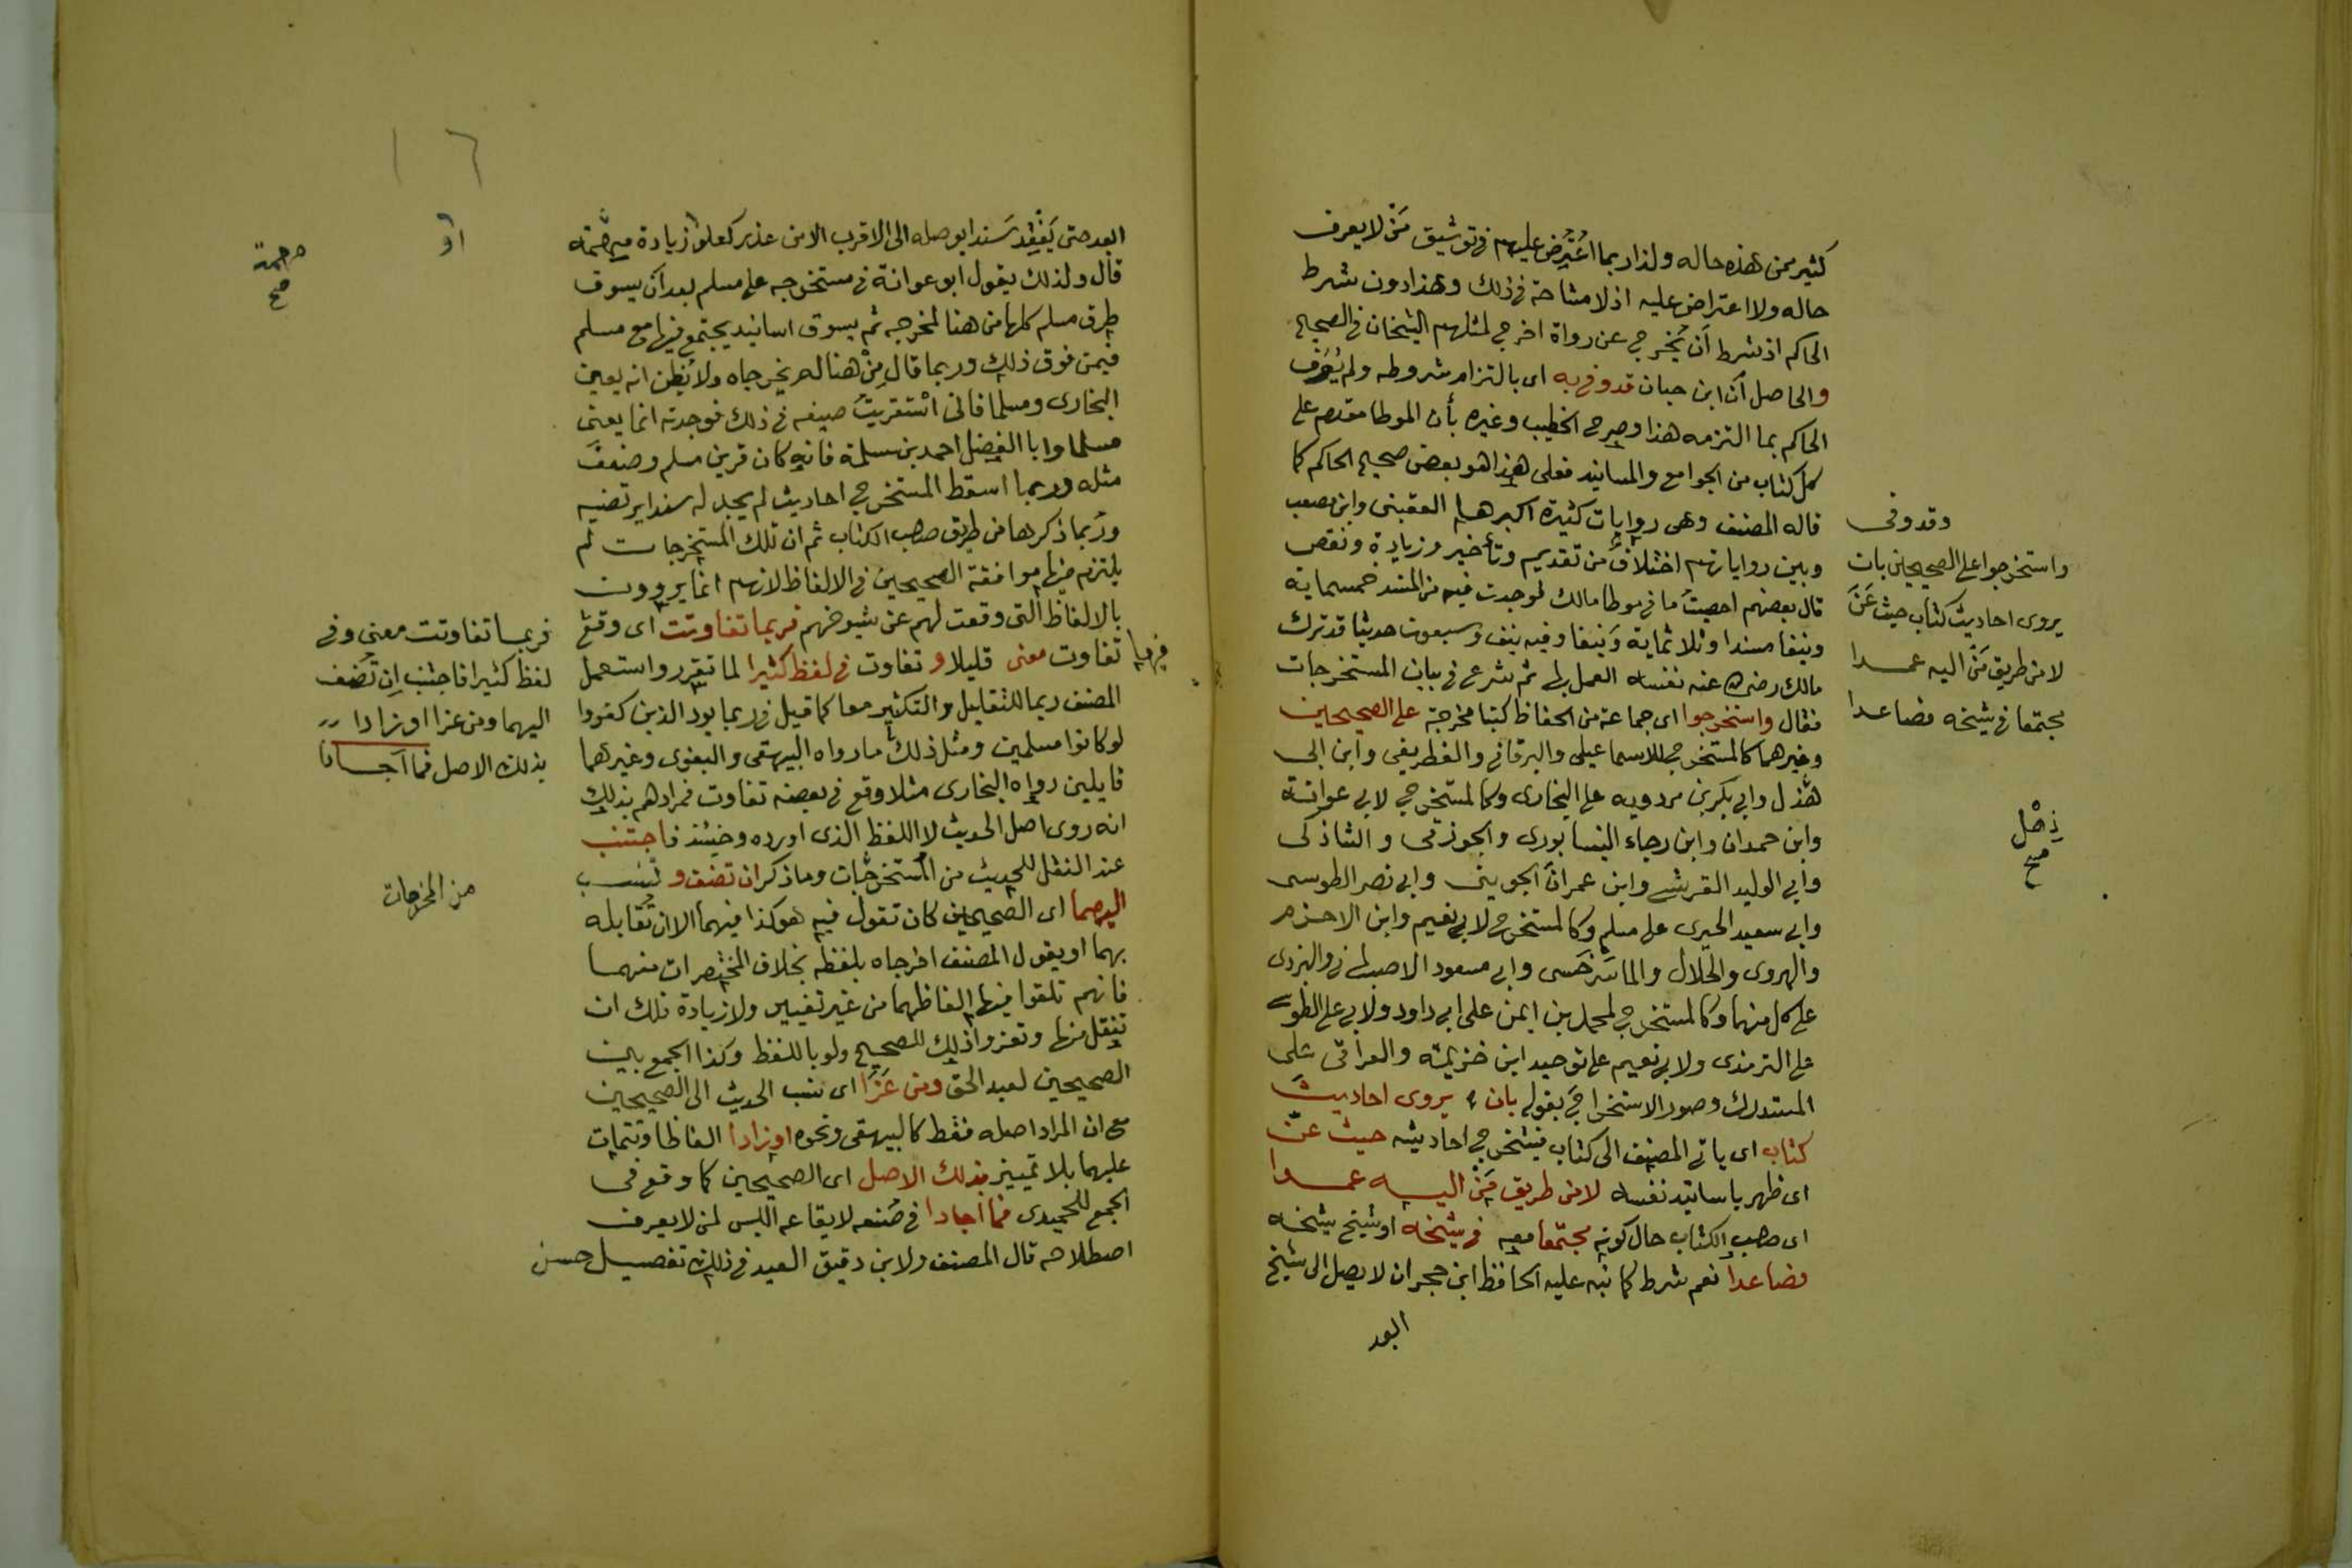 كثير ممن هذه حاله ولذا ربما اعترض عليهم في توثيق من لا يعرف
حاله ولا اعتراض عليه اذ لا مشاحة في ذلك وهذا دون شرط
الحاكم اذ شرط أن يخرج عن رواة اخرج لمثلهم الشيخان في الصحيح
والحاصل أن ابن حبان قد وفى به اى بالتزام شروطه ولم يُعرف
الحاكم بما التزمه هذا وصرح الخطيب وغيره بأن الموطا مقدم على
كل كتاب من الجوامع والمسانيد فعلى هذا هو بعض صحيح الحاكم كما
قاله المصنف وهى روايات كثيرة اكبرها القعنبى وابن مصعب
وبين رواياتهم اختلاف من تقديم وتأخير وزيادة ونقص
قال بعضهم احصيت ما في موطا مالك فوجدت فيه من المسند خمسماية
ونيفا مسندا وثلاثماية ونيفا وفيه نيف وسبعون حديثا قد ترك
مالك رضى الله عنه نفسه العمل بها ثم شرع في بيان المستخرجات
فقال واستخرجوا اى جماعة من الحفاظ كتبا مخرجة على الصحيحين
وغيرهما كالمستخرج للاسماعيلى والبرقانى والغطريفى وابن ابى
هذل وابى بكر بن مردويه على البخارى وكالمستخرج لابى عوانة
وابن حمدان وابن رجاء النيسابورى والجوزقى والشاذكى
وابى الوليد القرشى وابن عمران الجوينى وابى نصر الطوسى
وابى سعيد الحيرى على مسلم وكالمستخرج لابى نعيم وابن الاخرم
والهروى والخلال والماسرخسى وابى مسعود الاصبهانى واليزدى
على كل منهما وكالمستخرج لمحمد بن ايمن على ابى داود ولابى على الطوسى
على الترمذى ولابى نعيم على توحيد ابن خزيمة والعراقى على
المستدرك وصور الاستخراج بقوله بان يروى احاديث
كتاب اى ياتى المصنف الى كتاب فيستخرج احاديثه حيث عنّ
اى ظهر باسانيد نفسه لا من طريق مَن اليه عمدا
اى صاحب الكتاب حال كونه مجتمعا معه في شيخه او شيخ شيخه
فصاعدا نعم شرط كما نبه عليه الحافظ ابن حجر ان لا يصل الى شيخ
ابعد
وقد وفى
واستخرجوا على الصحيحين بان
يروى احاديث كتاب حيث عَنّ
لا من طريق مَن اليه عمدا
مجتمعا في شيخه فصاعدا
ذهل
صح
١٦
ابعد حتى يَفْقِد سندا يوصله الى الاقرب الا من عذر كعلو زيادة مهمة
قال ولذلك يقول ابو عوانة في مستخرجه على مسلم بعد أن يسوق
طرق مسلم كلها من هنا لمخرجه ثم يسوق اسانيد يجتمع فيها مع مسلم
فيمن فوق ذلك وربما قال مِن هنا لم يخرجاه ولا يظن انه يعين
البخارى ومسلما فانى استقريت صنيعه في ذلك فوجدته انما يعنى
مسلما وابا الفضل احمد بن سلمة فانه كان قرين مسلم وصنف
مثله وربما اسقط المستخرج احاديث لم يجد له سندا يرتضيه
وربما ذكرها من طريق صاحب الكتاب ثم ان تلك المستخرجات لم
يلتزم فيها موافقة الصحيحين في الالفاظ لانهم انما يروون
بالالفاظ التى وقعت لهم عن شيوخهم فربما تفاوتت اى وقع
تفاوت معنى قليلا و تفاوت في لفظ كثيرا لما تقرر واستعمل
المصنف ربما للتقليل والتكثير معا كما قيل في ربما يود الذين كفروا
لو كانوا مسلمين ومثل ذلك ما رواه البيهقى والبغوى وغيرهما
قايلين رواه البخارى مثلا وقع في بعضه تفاوت فمرادهم بذلك
انه روى اصل الحديث لا اللفظ الذى اورده وحينئذ فاجتنب
عند النقل للحديث من المستخرجات وما ذكر ان تضف و تنسب
اليهما اى الصحيحين كان تقول فيه هو كذا فيهما الا ان تقابله
بهما او يقول المصنف اخرجاه بلفظه بخلاف المختصرات منهما
فانهم نقلوا فيها الفاظهما من غير تغيير ولا زيادة فلك ان
تنقل منها وتعزو ذلك للصحيح ولو باللفظ وكذا الجمع بين
الصحيحين لعبد الحق ومن عَزَا اى نسب الحديث الى الصحيحين
مع ان المراد اصله فقط كالبيهقى ونحوه او زادا الفاظا وتتمات
عليهما بلا تمييز بذلك الاصل اى الصحيحين كما وقع في
الجمع للحميدى فما اجادا في صنعه لايقاعه اللبس لمن لا يعرف
اصطلاحه قال المصنف ولابن دقيق العيد في ذلك تفصيل حسن
او
مهمة
صح
فيهما
فربما تفاوتت معنى وفى
لفظ كثيرا فاجتنب ان تضف
اليهما ومن عزا او زادا
بذلك الاصل فما اجادا
من المخرجات